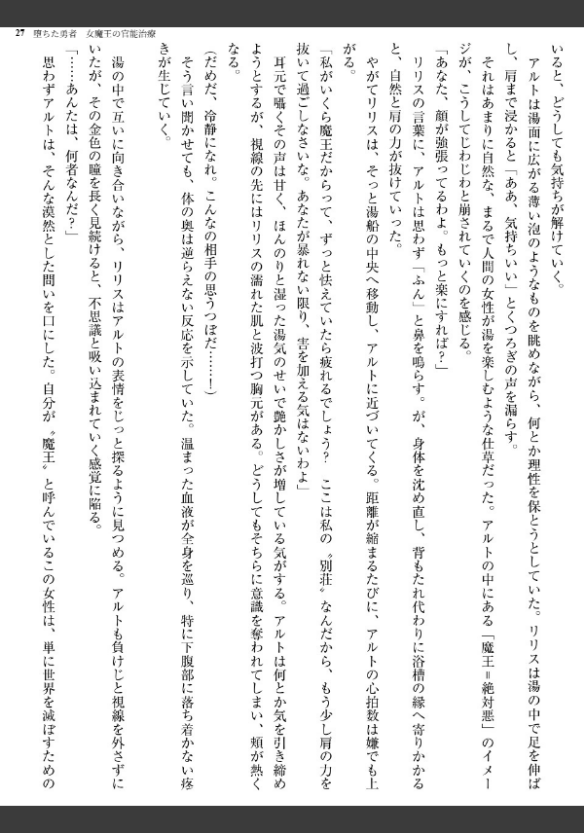 27 堕ちた勇者　女魔王の官能治療
いると、どうしても気持ちが解けていく。
　アルトは湯面に広がる薄い泡のようなものを眺めながら、何とか理性を保とうとしていた。リリスは湯の中で足を伸ば
し、肩まで浸かると「ああ、気持ちいい」とくつろぎの声を漏らす。
　それはあまりに自然な、まるで人間の女性が湯を楽しむような仕草だった。アルトの中にある「魔王＝絶対悪」のイメー
ジが、こうしてじわじわと崩されていくのを感じる。
「あなた、顔が強張ってるわよ。もっと楽にすれば？」
　リリスの言葉に、アルトは思わず「ふん」と鼻を鳴らす。が、身体を沈め直し、背もたれ代わりに浴槽の縁へ寄りかかる
と、自然と肩の力が抜けていった。
　やがてリリスは、そっと湯船の中央へ移動し、アルトに近づいてくる。距離が縮まるたびに、アルトの心拍数は嫌でも上
がる。
「私がいくら魔王だからって、ずっと怯えていたら疲れるでしょう？　ここは私の〝別荘〟なんだから、もう少し肩の力を
抜いて過ごしなさいな。あなたが暴れない限り、害を加える気はないわよ」
　耳元で囁くその声は甘く、ほんのりと湿った湯気のせいで艶かしさが増している気がする。アルトは何とか気を引き締め
ようとするが、視線の先にはリリスの濡れた肌と波打つ胸元がある。どうしてもそちらに意識を奪われてしまい、頬が熱く
なる。
（だめだ、冷静になれ。こんなの相手の思うつぼだ……！）
　そう言い聞かせても、体の奥は逆らえない反応を示していた。温まった血液が全身を巡り、特に下腹部に落ち着かない疼
きが生じていく。
　湯の中で互いに向き合いながら、リリスはアルトの表情をじっと探るように見つめる。アルトも負けじと視線を外さずに
いたが、その金色の瞳を長く見続けると、不思議と吸い込まれていく感覚に陥る。
「……あんたは、何者なんだ？」
　思わずアルトは、そんな漠然とした問いを口にした。自分が〝魔王〟と呼んでいるこの女性は、単に世界を滅ぼすための